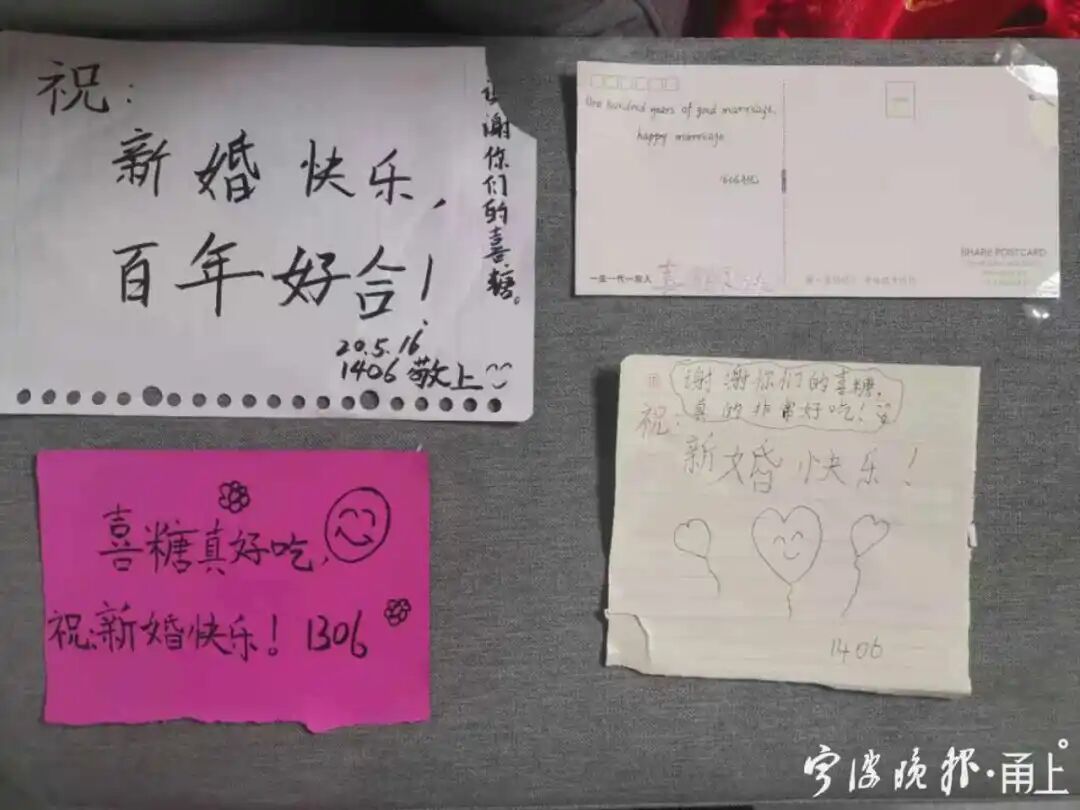 祝：
新婚快乐，
百年好合！
谢你们的喜糖。
20.5.16
1406 敬上
One hundred years of good marriage,
happy marriage
SHARE POSTCARD
一生一代一双人
喜糖真好吃，
祝：新婚快乐！1306
谢谢你们的喜糖，
真的非常好吃！
祝：
新婚快乐！
1406
宁波晚报·甬上